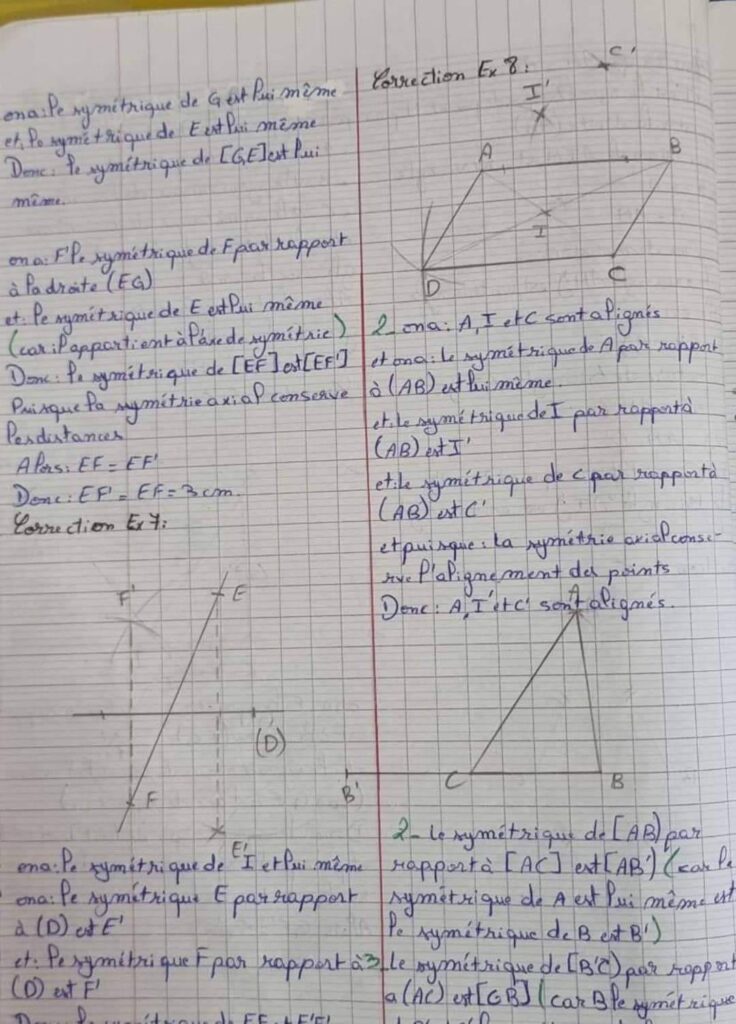 ona: le symétrique de G est lui même
et, le symétrique de E est lui même
Donc: le symétrique de [G,E] est lui
même.
ona: F' le symétrique de F par rapport
à la droite (EG)
et: le symétrique de E est lui même
(car il appartient à l'axe de symétrie)
Donc: le symétrique de [EF] est [EF']
Puisque la symétrie axial conserve
les distances
Alors: EF = EF'
Donc: EF' = EF = 3 cm.
Correction Ex 7:
F'
E
(D)
F
E'
ona: le symétrique de I et lui même
ona: le symétrique E par rapport
à (D) est E'
et: le symétrique F par rapport à
(D) est F'
Correction Ex 8:
C'
I'
A
B
I
D
C
2_ ona: A, I et C sont alignés
et ona: le symétrique de A par rapport
à (AB) est lui même.
et: le symétrique de I par rapport à
(AB) est I'
et: le symétrique de C par rapport à
(AB) est C'
et puisque: la symétrie axial conse-
rve l'alignement des points
Donc: A, I' et C' sont alignés.
A
B'
C
B
2- Le symétrique de [AB) par
rapport à [AC] est [AB') (car le
symétrique de A est lui même et
le symétrique de B est B')
3_ Le symétrique de [B'C) par rapport
a (AC) est [CB] (car B le symétrique